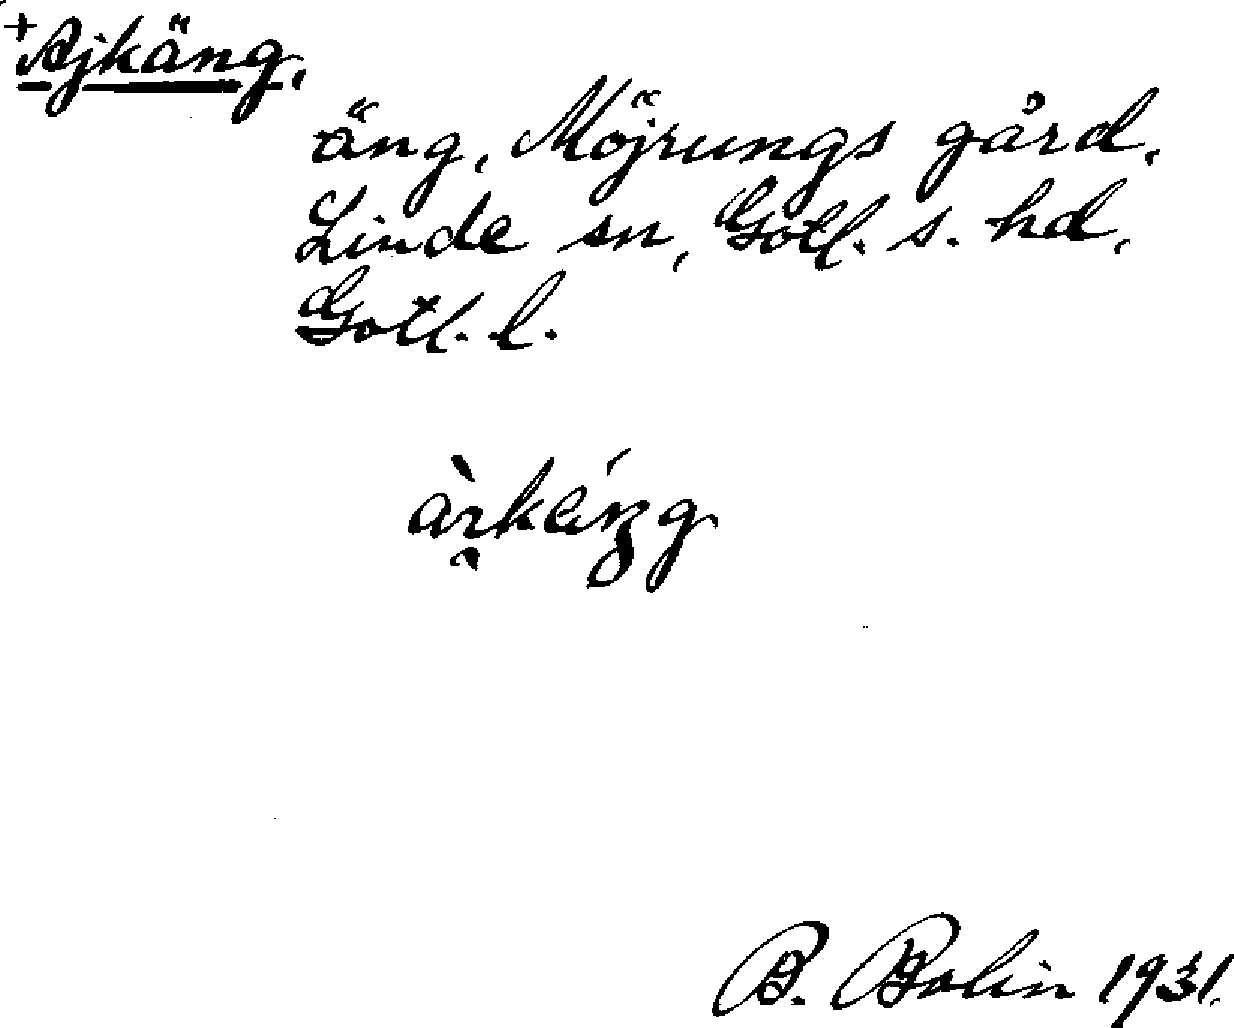 +Ajkäng,
äng, Möjrungs gård,
Linde sn, Gotl. s. hd,
Gotl. l.
B. Bolin 1931.